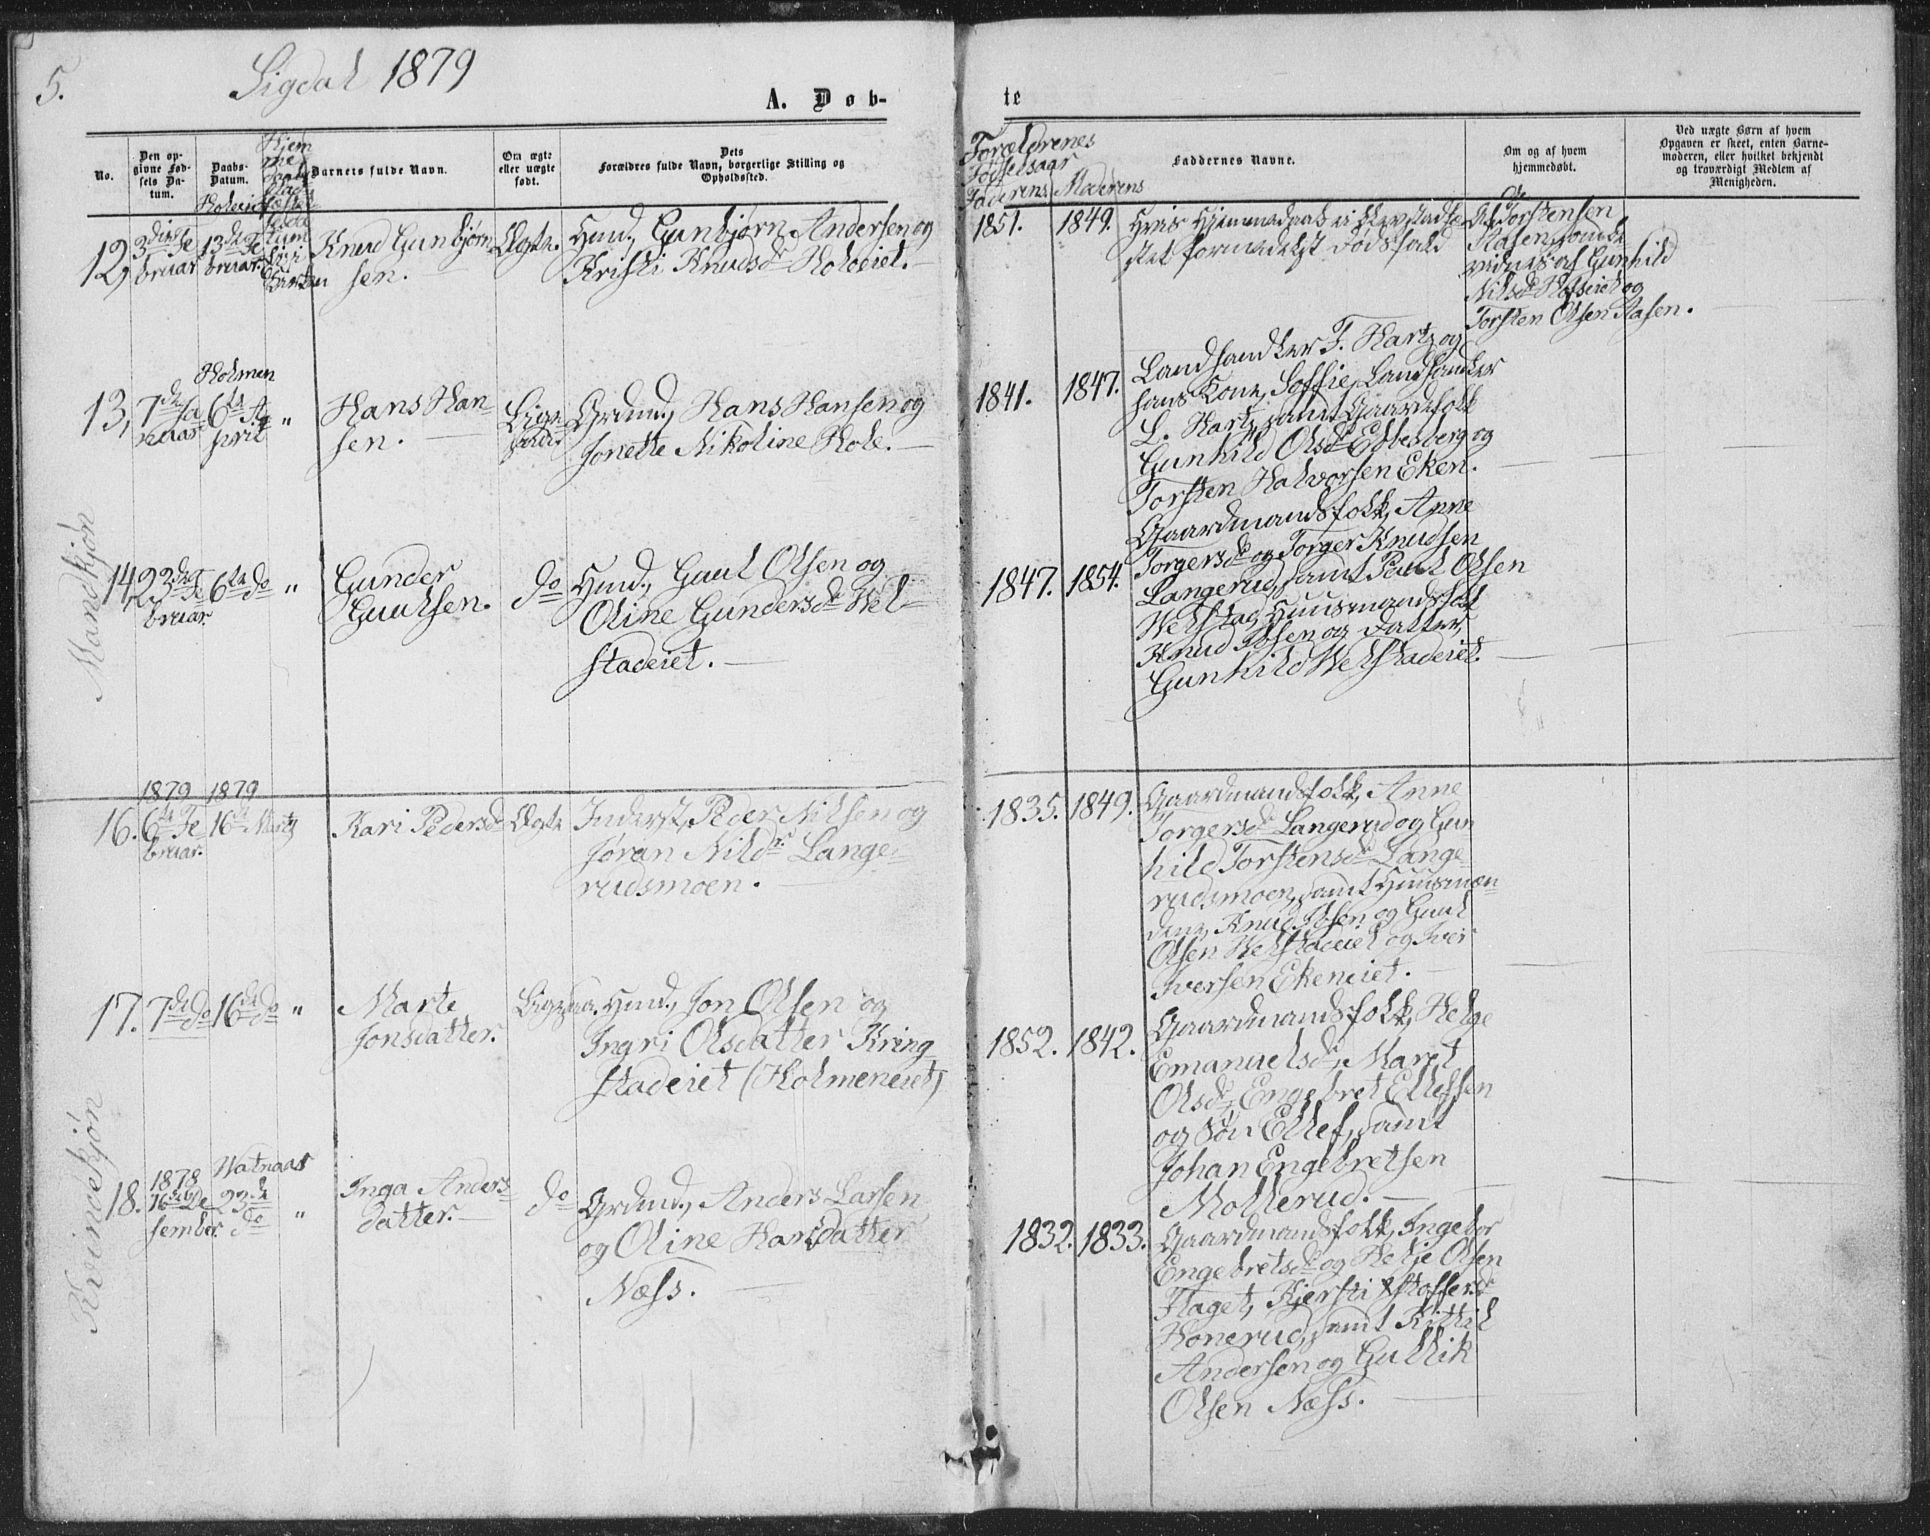 5.
Sigdal 1879
A. Døb-
te
No.
Den op-
givne Fød-
sels Da-
tum.
Daabs-
Datum.
Hjem
me
Barnets fulde Navn.
Om ægte
eller uægte
født.
Dets
Forældres fulde Navn, borgerlige Stilling og
Opholdssted.
Forældrenes
Fødselsaar
Faderens Moderens
Faddernes Navne.
Om og af hvem
hjemmedøbt.
Ved uægte Børn af hvem
Opgaven er skeet, enten Barne-
moderen, eller hvilket bekjendt
og troværdigt Medlem af
Menigheden.
Mandkjøn
12,
3die Fe
bruar
13de Fe
bruar
Knud Gunbjørn
sen.
Ægte.
Hmd., Gunbjørn Andersen og
Kristi Knudsdr Holveiet.
1851.
1849.
Hvis Hjemmedaab ei blev stadfæ
stet formedelst Dødsfald
Af Torstensen
Aasen, som be
vidnes af Gunhild
Nilsdr Hofseiet og
Torsten Olsen Aasen.
13,
7de Ja
nuar
Holmen
6te A
pril
"
Hans Han
sen.
Ligele
des
Grdmd., Hans Hansen og
Jonette Nikoline Hole.
1841.
1847.
Landhandler F. Hartz og
hans Kone, Soffie, Landhandler
L. Hartz, samt Gaardfolk
Gunhild Olsdr Edbesberg og
Torsten Halvorsen Eken.
14,
23de Fe
bruar.
6te do
"
Gunder
Guulsen.
do
Hmd., Guul Olsen og
Oline Gundersdr Wel-
stadeiet.
1847.
1854.
Gaardmandsfolk, Anne
Torgersdr og Torger Knudsen
Langerud, samt Paul Olsen
Welstad, Huusmandsfolk
Knud Olsen og Datter,
Gunhild Welstadeiet.
Kvindekjøn
16.
1879
6te Fe
bruar.
1879
16de Marts
Kari Pedersdr
Ægte
Inderst, Peder Nilsen og
Jøran Nilsdr. Lange-
rudsmoen.
1835.
1849.
Gaardmandsfolk, Anne
Torgersdr Langerud og Gun
hild Torstensdr Lange-
rudsmoen, samt Huusmæn-
dene, Knud Olsen og Guul
Olsen Welstadeiet og Iver
Iversen Ekeneiet.
17.
7de do
16de do
"
Marte
Jonsdatter.
Ligesaa.
Hmd., Jon Olsen og
Ingri Olsdatter Kring
stadeiet (Holmeneiet)
1852.
1842.
Gaardmandsfolk, Helge
Emanuelsdr, Maret
Olsdr, Engebret Ellefsen
og Søn Ellef, samt
Johan Engebretsen
Mollerud.
18.
1878
16de De
sember.
Watnaas
23de
do
"
Inga Anders-
datter.
do
Grdmd., Anders Larsen
og Oline Hansdatter
Næss.
1832.
1833.
Gaardmandsfolk, Ingebor
Engebretsdr og Helje Olsen
Flaget, Kjersti Kstoffersdr
Honerud, samt Kittil
Andersen og Gullik
Olsen Næss.